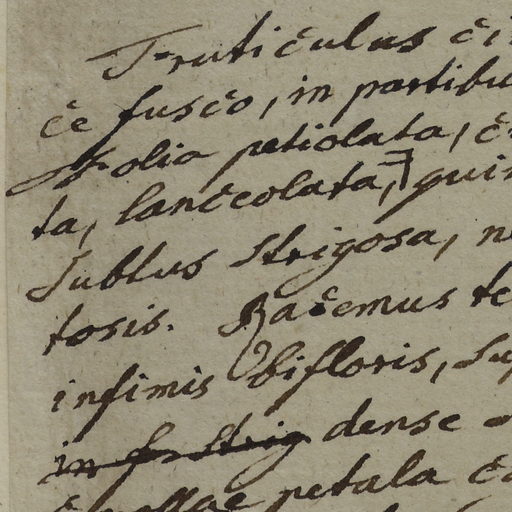 Fruticulus
ce fusco, in partibu
Folia petiolata, c
ta, lanceolata, quin
Subtus strigosa, n
tosis. Racemus te
infimis bifloris, su
dense
petala